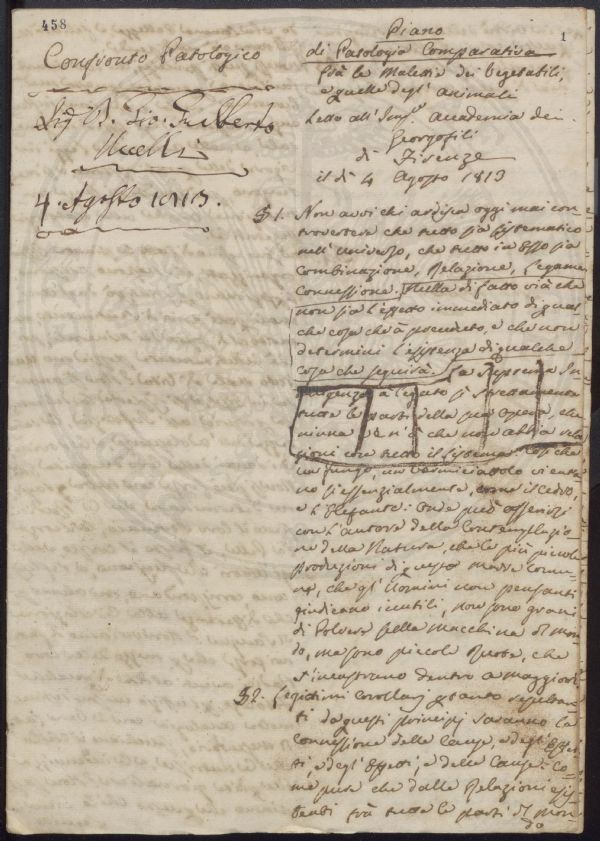 458
Confronto Patologico
Sig. Gio. Gualberto
Uccelli
4. Agosto 1813.
1
Piano
di Patologia Comparativa
frà le Malattie dei Vegetabili,
e quelle degl' animali
Letto all' Accademia dei
Georgofili
di Firenze
il dì 4 Agosto 1813
§ 1. Non avvi chi ardisca oggi mai con-
trovertere che tutto sia sistematico
nell' Universo, che tutto in esso sia
Combinazione, Relazione, Legame,
Connessione. Nulla di fatto vi à che
non sia l'effetto immediato di qual
che cosa che à preceduto, e che non
determini l'esistenza di qualche
cosa che seguirà. La Suprema In-
telligenza à legato sì strettamente
tutte le parti della sua opera, che
niuna ve n'è che non abbia rela
zioni con tutto il sistema. Così che
un fungo, un vermicciattolo vi entra
no sì essenzialmente, come il Cedro,
e l'Elefante: Onde può asserirsi
con l'autore della Contemplazio
ne della Natura, che le più piccole
produzioni di
che gl' Uomini non pensanti
giudicano inutili, non sono grani
di Polvere nella macchina del mon-
do, ma sono piccole Ruote, che
s'incastrano dentro a maggiori
§ 2. Legittimi Corollarj
ti da questi principj saranno la
Connessione delle Cause, e degl' Effet-
ti, e degl' Effetti, e delle Cause. Co-
me pure che dalle Relazioni esis-
tenti frà tutte le parti del mon
do